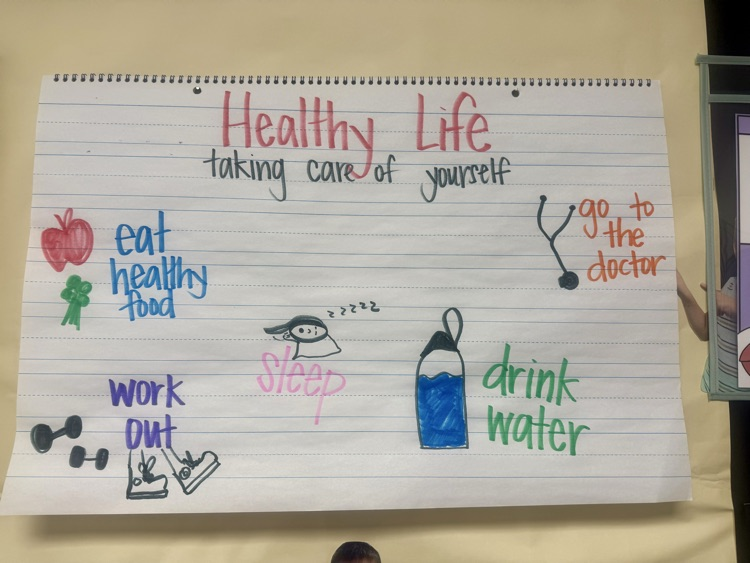 Healthy Life
taking care of yourself
go to
the
doctor
eat
healthy
food
zzzzz
sleep
drink
water
work
out